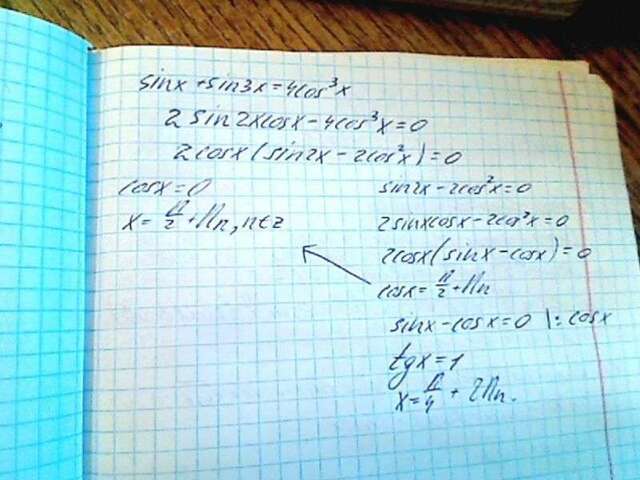 sinx + sin3x = 4cos³x
2 sin2xcosx - 4cos³x = 0
2cosx(sin2x - 2cos²x) = 0
cosx = 0
x = П/2 + Пn, n∈z
sin2x - 2cos²x = 0
2sinxcosx - 2cos²x = 0
2cosx(sinx - cosx) = 0
cosx = П/2 + Пn
sinx - cosx = 0 |: cosx
tgx = 1
x = П/4 + 2Пn.